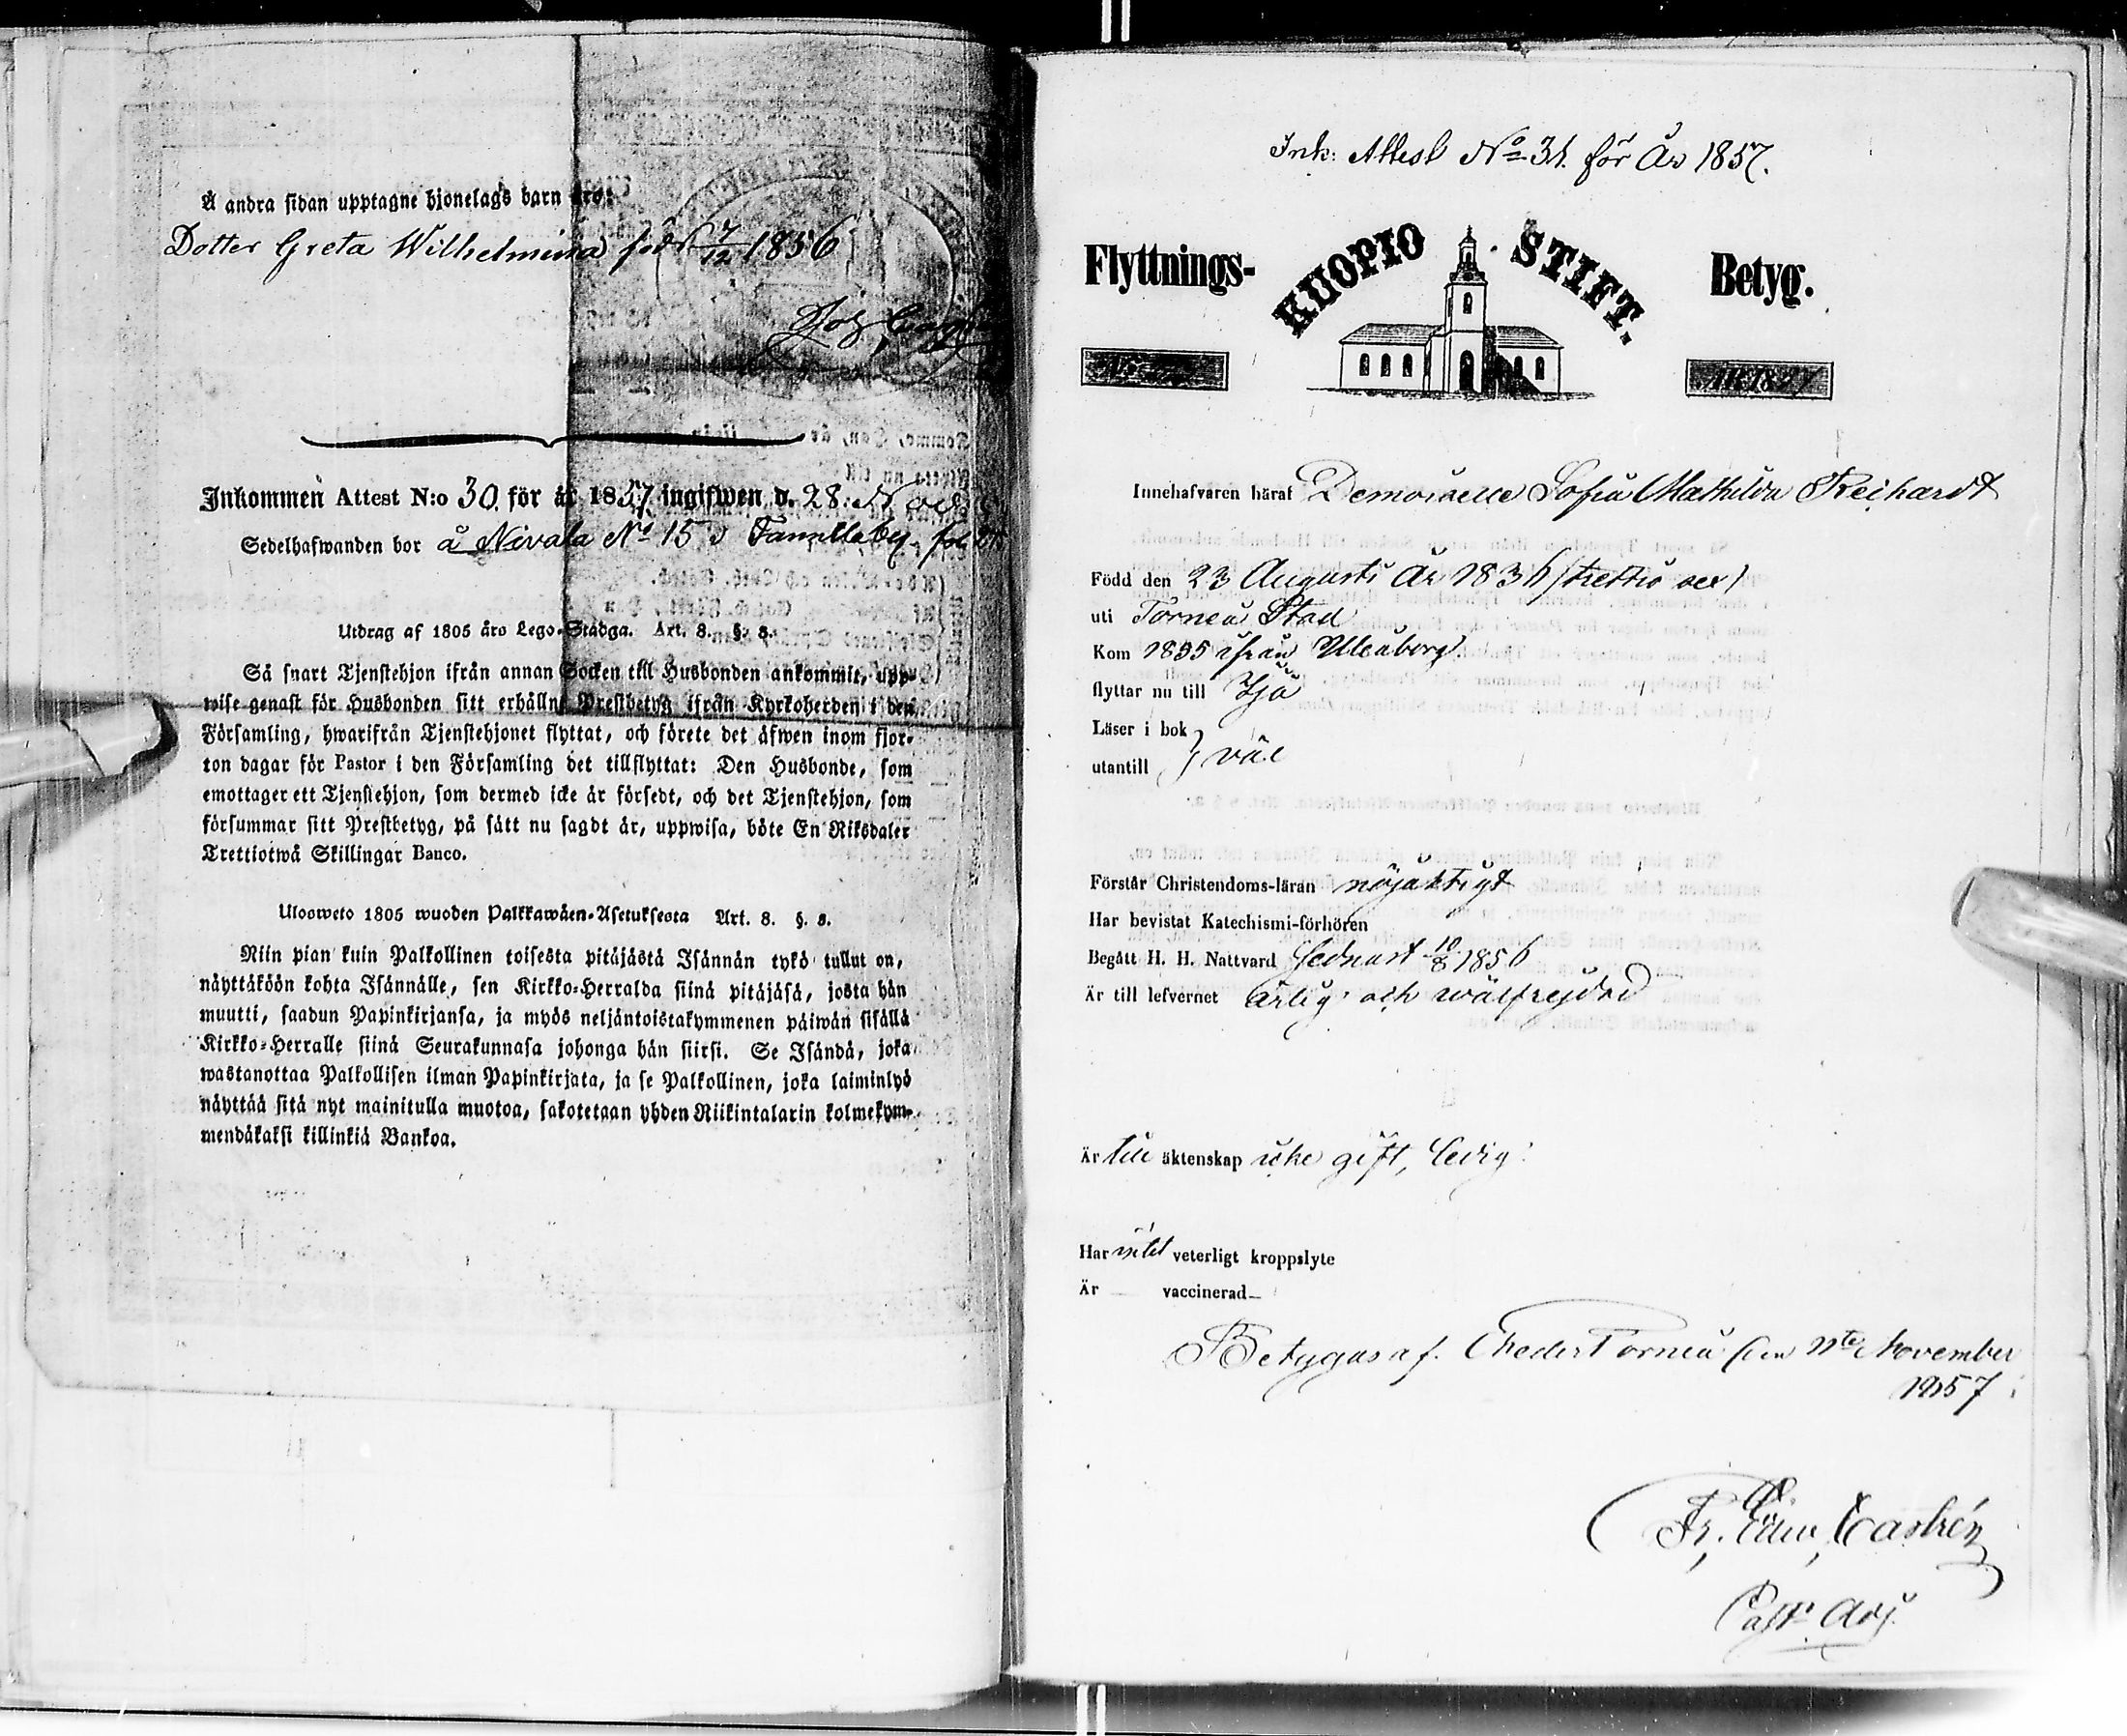 Å andra sidan upptagne hjonelags barn äro:
Dotter Greta Wilhelmina född 7/12 1856
Inkommen Attest N:o 30. för år 1857 ingifwen d. 28. Nov
Sedelhafwanden bor å Nivala No 15 i
Utdrag af 1805 års Lego-Stadga. Art. 8. §. 8.
Så snart Tjenstehjon ifrån annan Socken till Husbonden ankommit, upp-
wise genast för Husbonden sitt erhållne Prestbetyg ifrån Kyrkoherden i den
Församling, hwarifrån Tjenstehjonet flyttat, och förete det äfwen inom fjor-
ton dagar för Pastor i den Församling det tillflyttat: Den Husbonde, som
emottager ett Tjenstehjon, som dermed icke är försedt, och det Tjenstehjon, som
försummar sitt Prestbetyg, på sätt nu sagdt är, uppwisa, böte En Riksdaler
Trettiotwå Skillingar Banco.
Ulosweto 1805 wuoden Palkkawäen-Asetuksesta Art. 8. §. 8.
Niin pian kuin Palkollinen toisesta pitäjästä Isännän tykö tullut on,
näyttäköön kohta Isännälle, sen Kirkko-Herralda siinä pitäjäsä, josta hän
muutti, saadun Papinkirjansa, ja myös neljäntoistakymmenen päiwän sisällä
Kirkko-Herralle siinä Seurakunnasa johonga hän siirsi. Se Isändä, joka
wastanottaa Palkollisen ilman Papinkirjata, ja se Palkollinen, joka laiminlyö
näyttää sitä nyt mainitulla muotoa, sakotetaan yhden Riikintalarin kolmekym-
mendäkaksi killinkiä Bankoa.
Ink: Attest No 31. för År 1857.
Flyttnings- KUOPIO STIFT. Betyg.
Innehafvaren häraf Demoiselle Sofia Mathilda Reichardt
Född den 23 Augusti År 1836 (trettio sex)
uti Torneå Stad
Kom 1835 ifrån Uleåborg
flyttar nu till Ijo
Läser i bok
utantill } väl
Förstår Christendoms-läran nöjaktigt
Har bevistat Katechismi-förhören
Begått H. H. Nattvard sednast 10/8 1856
Är till lefvernet ärlig och wälfrejdad
Är till äktenskap icke gift, ledig.
Har intet veterligt kroppslyte
Är vaccinerad
Betygas af. Neder Torneå den November
1857
Fr. Edw. Castrén
Past. Adj.